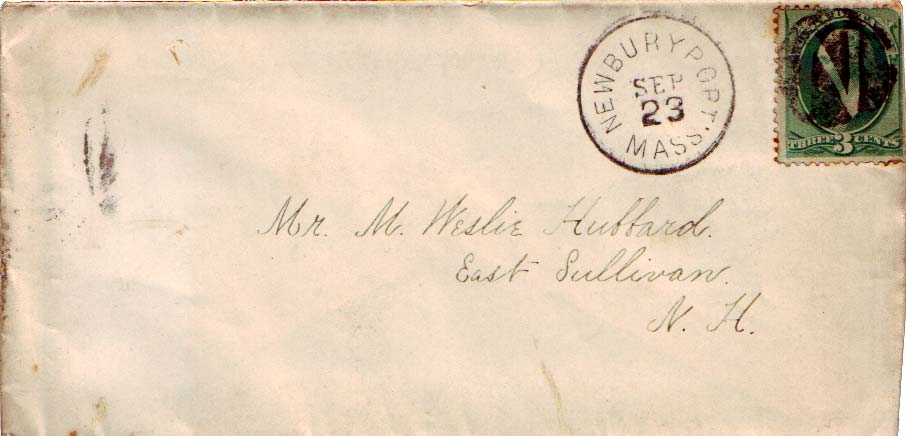 NEWBURYPORT. MASS.
SEP
23
THREE 3 CENTS
Mr. M. Weslie Hubbard.
East Sullivan.
N. H.